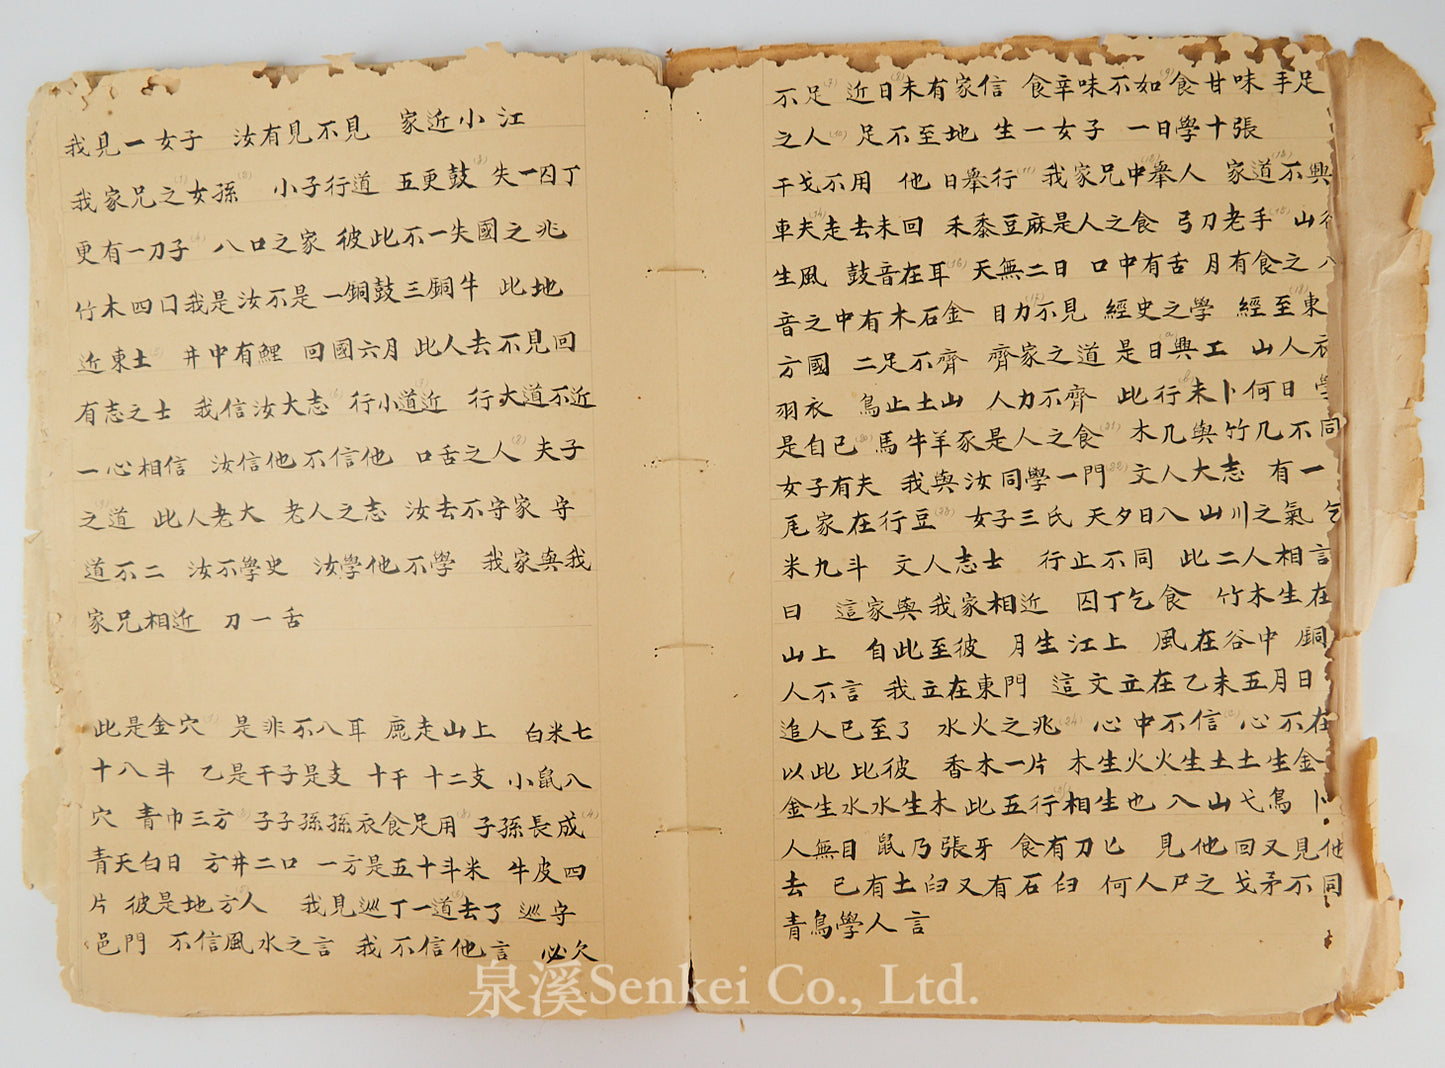 我見一女子 汝有見不見 家近小江
我家兄之女孫 小子行道 五更鼓 失一囚丁
更有一刀子 八口之家 彼此不一失國之兆
竹木四口我是汝不是一銅鼓三銅牛 此地
近東土 井中有鯉 回國六月 此人去不見回
有志之士 我信汝大志 行小道近 行大道不近
一心相信 汝信他不信他 口舌之人 夫子
之道 此人老大 老人之志 汝去不守家 守
道不二 汝不學史 汝學他不學 我家與我
家兄相近 刀一舌
此是金穴 是非不入耳 鹿走山上 白米七
十八斗 乙是干子是支 十干 十二支 小鼠入
穴 青巾三方 子子孫孫衣食足用 子孫長成
青天白日 方井二口 一方是五十斗米 牛皮四
片 彼是地方人 我見巡丁一道去了 巡守
邑門 不信風水之言 我不信他言 必欠
不足 近日未有家信 食辛味不如食甘味 手足
之人 足不至地 生一女子 一日學十張
干戈不用 他日舉行 我家兄中舉人 家道不興
車夫走去未回 禾黍豆麻是人之食 弓刀老手 山谷
生風 鼓音在耳 天無二日 口中有舌 月有食之 八
音之中有木石金 目力不見 經史之學 經至東
方國 二足不齊 齊家之道 是日興工 山人衣
羽衣 鳥止土山 人力不齊 此行未卜何日 學
是自己 馬牛羊豕是人之食 木几與竹几不同
女子有夫 我與汝同學一門 文人大志 有一
尾家在行豆 女子三氏 天夕日入 山川之氣 乞
米九斗 文人志士 行止不同 此二人相言
曰 這家與我家相近 囚丁乞食 竹木生在
山上 自此至彼 月生江上 風在谷中 銅
人不言 我立在東門 這文立在乙未五月日
追人已至了 水火之兆 心中不信 心不在
以此比彼 香木一片 木生火火生土土生金
金生水水生木此五行相生也 入山弋鳥 卜
人無目 鼠乃張牙 食有刀匕 見他回又見他
去 已有土臼又有石臼 何人尸之 戈矛不同
青鳥學人言
泉溪Senkei Co., Ltd.